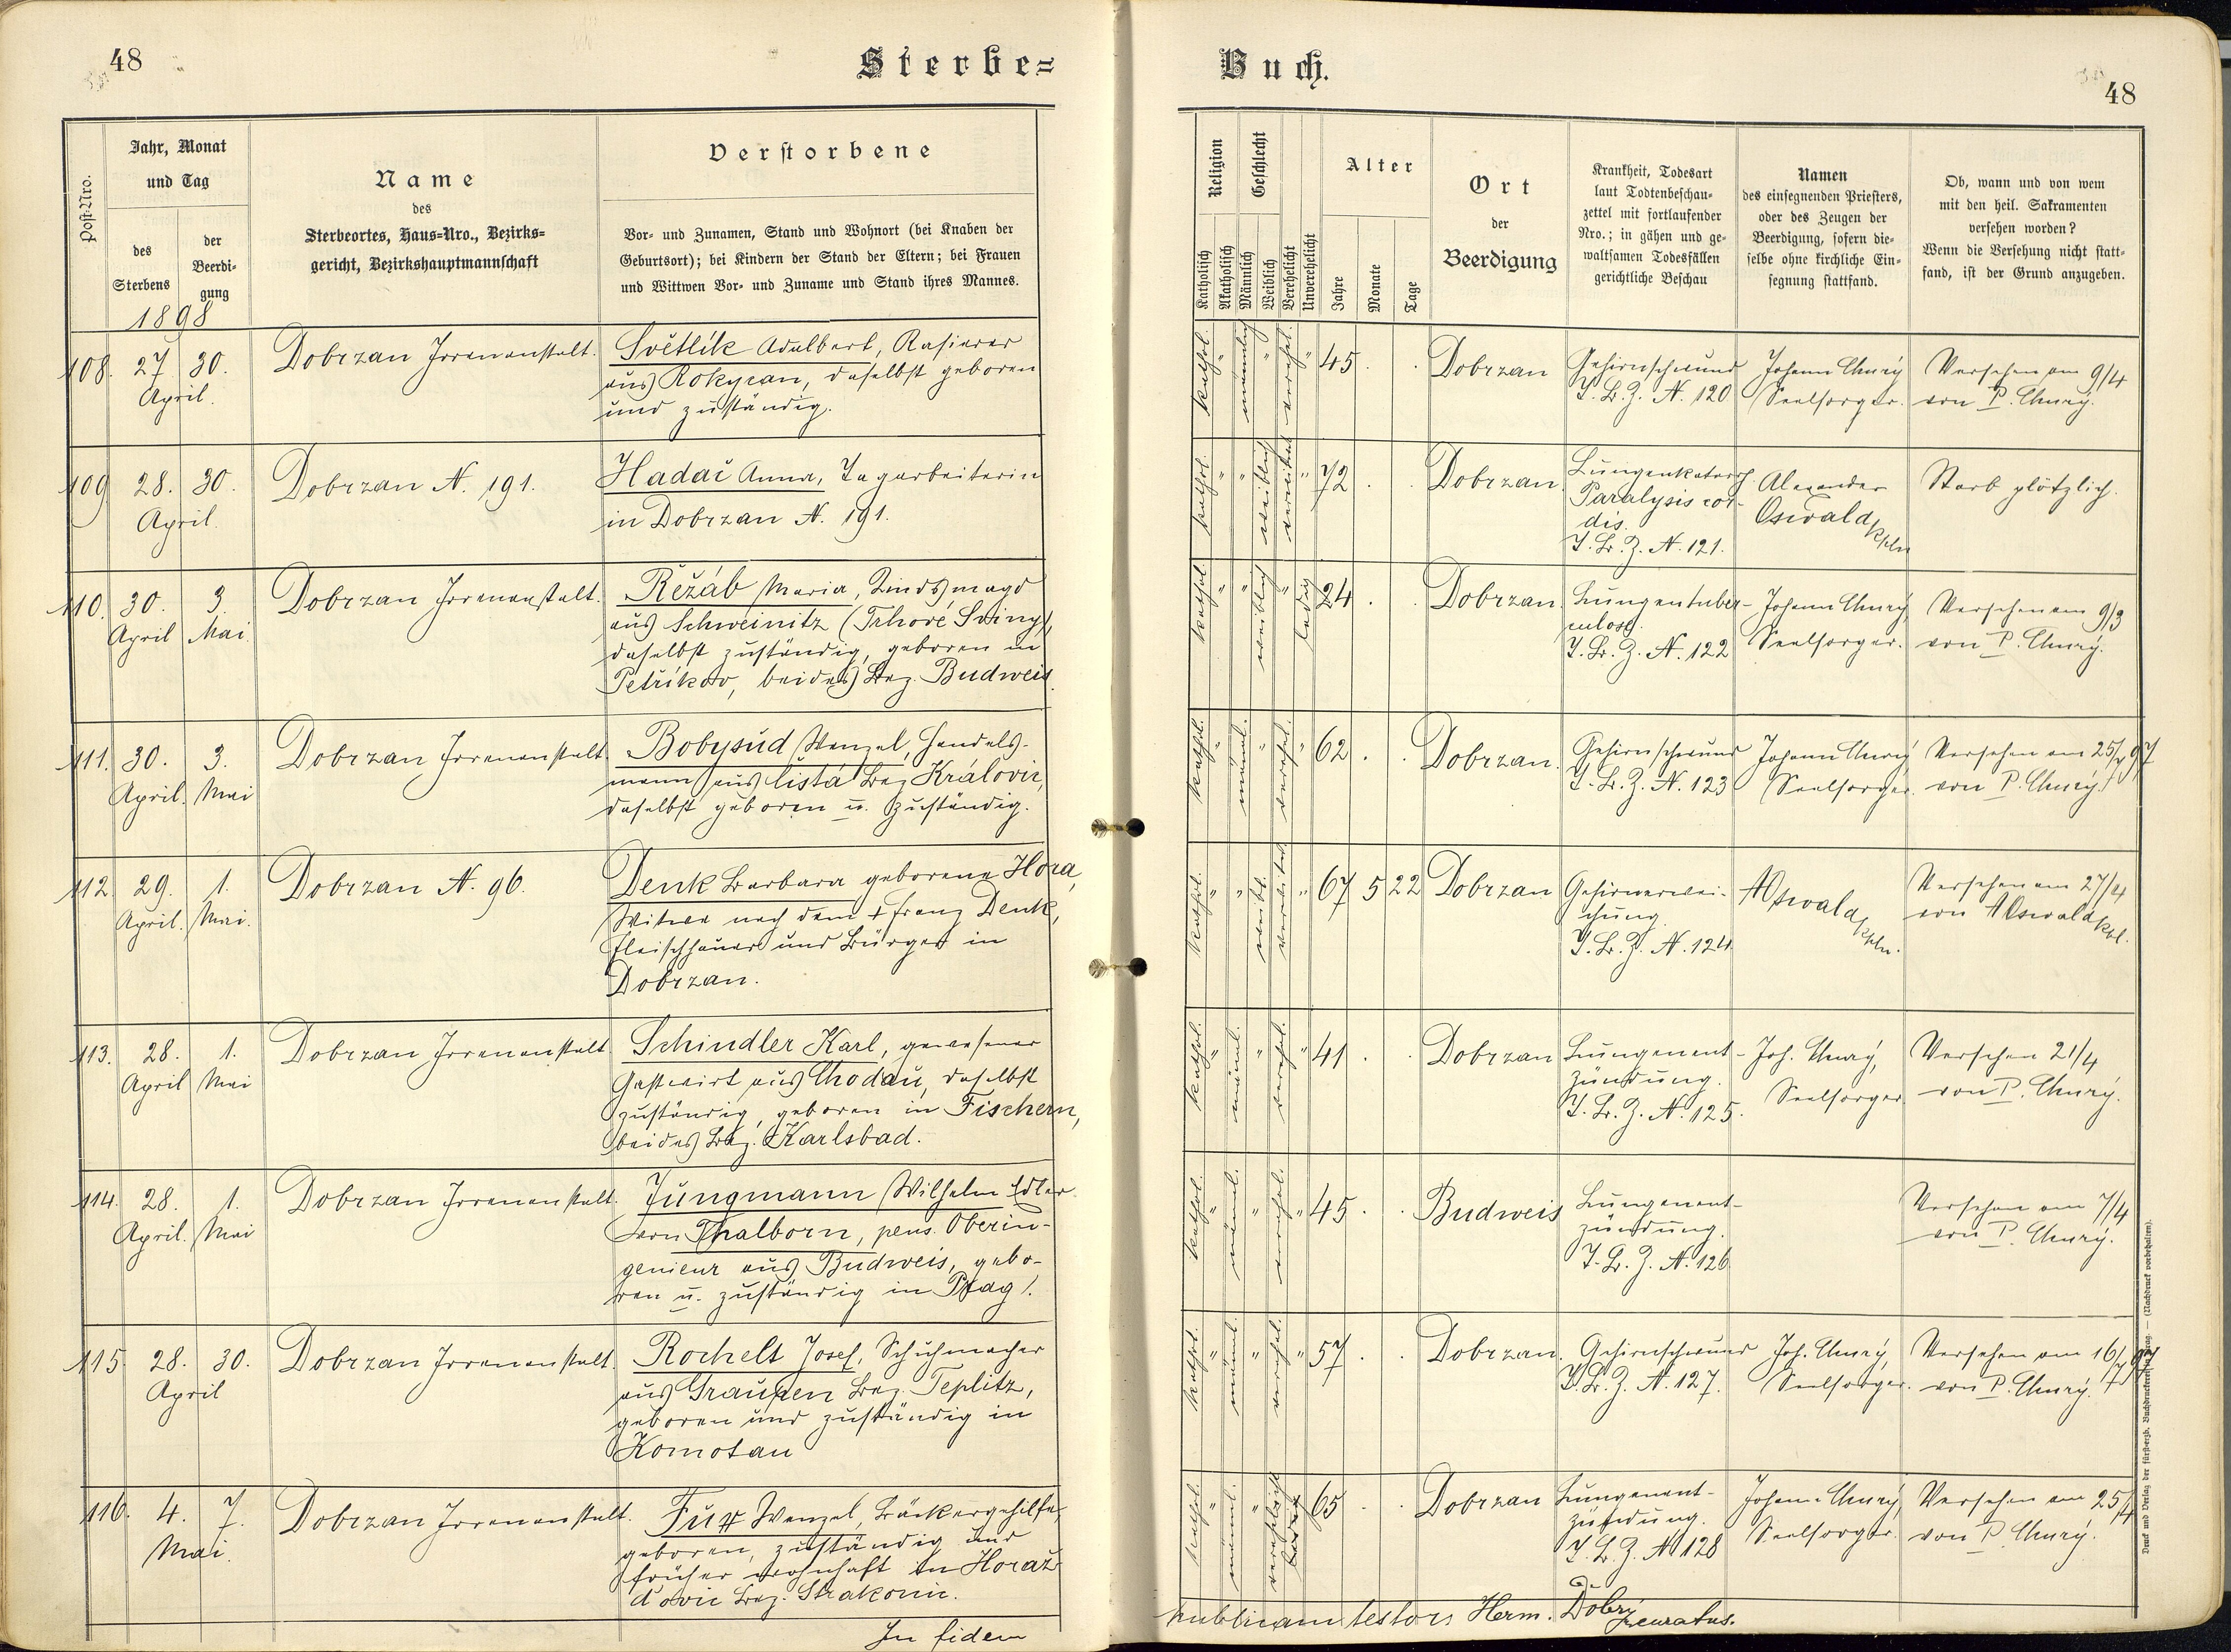 48
Sterbe=
Buch.
48
Post-Nro.
Jahr, Monat
und Tag
des
Sterbens
der
Beerdi-
gung
1898
Name
des
Sterbeortes, Haus-Nro., Bezirks-
gericht, Bezirkshauptmannschaft
Verstorbene
Vor- und Zunamen, Stand und Wohnort (bei Knaben der
Geburtsort); bei Kindern der Stand der Eltern; bei Frauen
und Wittwen Vor- und Zuname und Stand ihres Mannes.
Religion
Geschlecht
Katholisch
Akatholisch
Männlich
Weiblich
Verehelicht
Unverehelicht
Alter
Jahre
Monate
Tage
Ort
der
Beerdigung
Krankheit, Todesart
laut Todtenbeschau-
zettel mit fortlaufender
Nro.; in gähen und ge-
waltsamen Todesfällen
gerichtliche Beschau
Namen
des einsegnenden Priesters,
oder des Zeugen der
Beerdigung, sofern die-
selbe ohne kirchliche Ein-
segnung stattfand.
Ob, wann und von wem
mit den heil. Sakramenten
versehen worden?
Wenn die Versehung nicht statt-
fand, ist der Grund anzugeben.
108. 27 30.
April.
Dobrzan Irrenanstalt.
Světlík Adalbert, Rasierer
aus Rokycan, daselbst geboren
und zuständig.
kathol. " männlich " verehel. "
45 . .
Dobrzan
Gehirnschwund
T. B. Z. N. 120
Johann
Seelsorger.
Versehen am 9/4
von P.
109 28. 30.
April.
Dobrzan N. 191.
Hadač Anna, Tagarbeiterin
in Dobrzan N. 191.
kathol. " " weiblich verwitwet "
72 . .
Dobrzan.
Lungenkatarrh.
Paralysis cor-
dis.
T. B. Z. N. 121.
Alexander
Oswald
Kpln
Starb plötzlich.
110. 30. 3.
April Mai.
Dobrzan Irrenanstalt.
Řežáb Maria, Dinstmagd
aus Schweinitz (Trhové Sviny),
daselbst zuständig, geboren in
Petříkov, beides Bez. Budweis.
kathol. " " weiblich " ledig
24 . .
Dobrzan.
Lungentuber-
culose.
T. B. Z. N. 122
Johann
Seelsorger.
Versehen am 9/3
von P.
111. 30. 3.
April. Mai
Dobrzan Irrenanstalt.
Bobysud Wenzel, Handels-
mann aus Čistá Bez. Královic,
daselbst geboren u. zuständig.
kathol. " männl. " verehel. "
62 . .
Dobrzan.
Gehirnschwund
T. B. Z. N. 123
Johann
Seelsorger.
Versehen am
von P.
112 29. 1.
April. Mai.
Dobrzan N. 96.
Denk Barbara geborene Hora,
Witwe nach dem + Franz Denk,
Fleischhauer und Bürger in
Dobrzan.
kathol. " " weibl. verwitwet "
67 5 22
Dobrzan
Gehirnerwei-
chung
T. B. Z. N. 124
AOswald
Kpln.
Versehen am 27/4
von AOswald
Kpl.
113. 28. 1.
April Mai
Dobrzan Irrenanstalt
Schindler Karl, gewesener
Gastwirt aus Chodau, daselbst
zuständig, geboren in Fischern,
beides Bez. Karlsbad.
kathol. " männl. " verehel. "
41 . .
Dobrzan
Lungenent-
zündung.
T. B. Z. N. 125.
Joh.
Seelsorger
Versehen 21/4
von P.
114. 28. 1.
April. Mai
Dobrzan Irrenanstalt.
Jungmann Wilhelm Edler
von Thalborn, pens. Oberin-
genieur aus Budweis, gebo-
ren u. zuständig in Prag I.
kathol. " männl. " verehel. "
45 . .
Budweis
Lungenent-
zündung.
T. B. Z. N. 126
Versehen am 7/4
von P.
115 28. 30.
April
Dobrzan Irrenanstalt.
Rochelt Josef, Schuhmacher
aus Graupen Bez. Teplitz,
geboren und zuständig in
Komotau
kathol. " männl. " verehel. "
57 . .
Dobrzan.
Gehirnschwund
T. B. Z. N. 127.
Joh.
Seelsorger.
Versehen am
von P.
116. 4. 7.
Mai.
Dobrzan Irrenanstalt.
Wenzel, Bäckergehilfe,
geboren, zuständig und
früher wohnhaft in Horaž-
ďovic Bez. Strakonic.
kathol. " männl. "
65 . .
Dobrzan
Lungenent-
zündung.
T. B. Z. N 128
Johann
Seelsorger.
Versehen am 25/4
von P.
In fidem
publicam testor: Herm. Döbri
curatus.